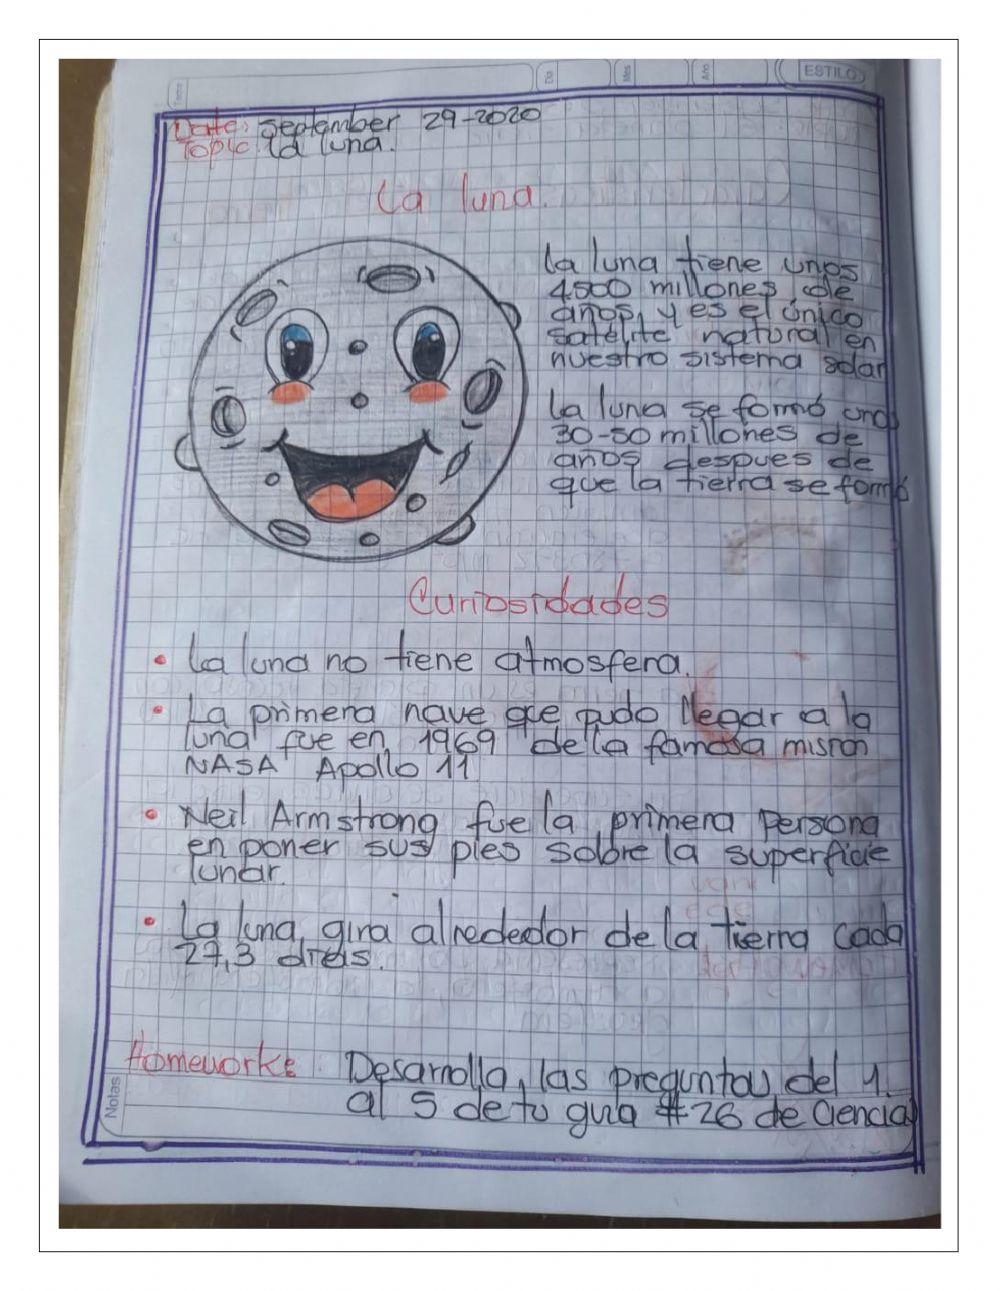 Tema
Día
Mes
Año
ESTILO
Date: september 29-2020
Topic: la luna.
La luna.
la luna tiene unos
4.500 millones de
años, y es el único
satélite natural en
nuestro sistema solar
la luna se formó unos
30-50 millones de
años despues de
que la tierra se formó
Curiosidades
• La luna no tiene atmosfera.
• La primera nave que pudo llegar a la
luna fue en 1969 de la famosa mision
NASA Apollo 11
• Neil Armstrong fue la primera persona
en poner sus pies sobre la superficie
lunar.
• La luna gira alrededor de la tierra cada
27,3 dias.
Homework: Desarrolla las preguntas del 1.
al 5 de tu guia #26 de Ciencias
Notas